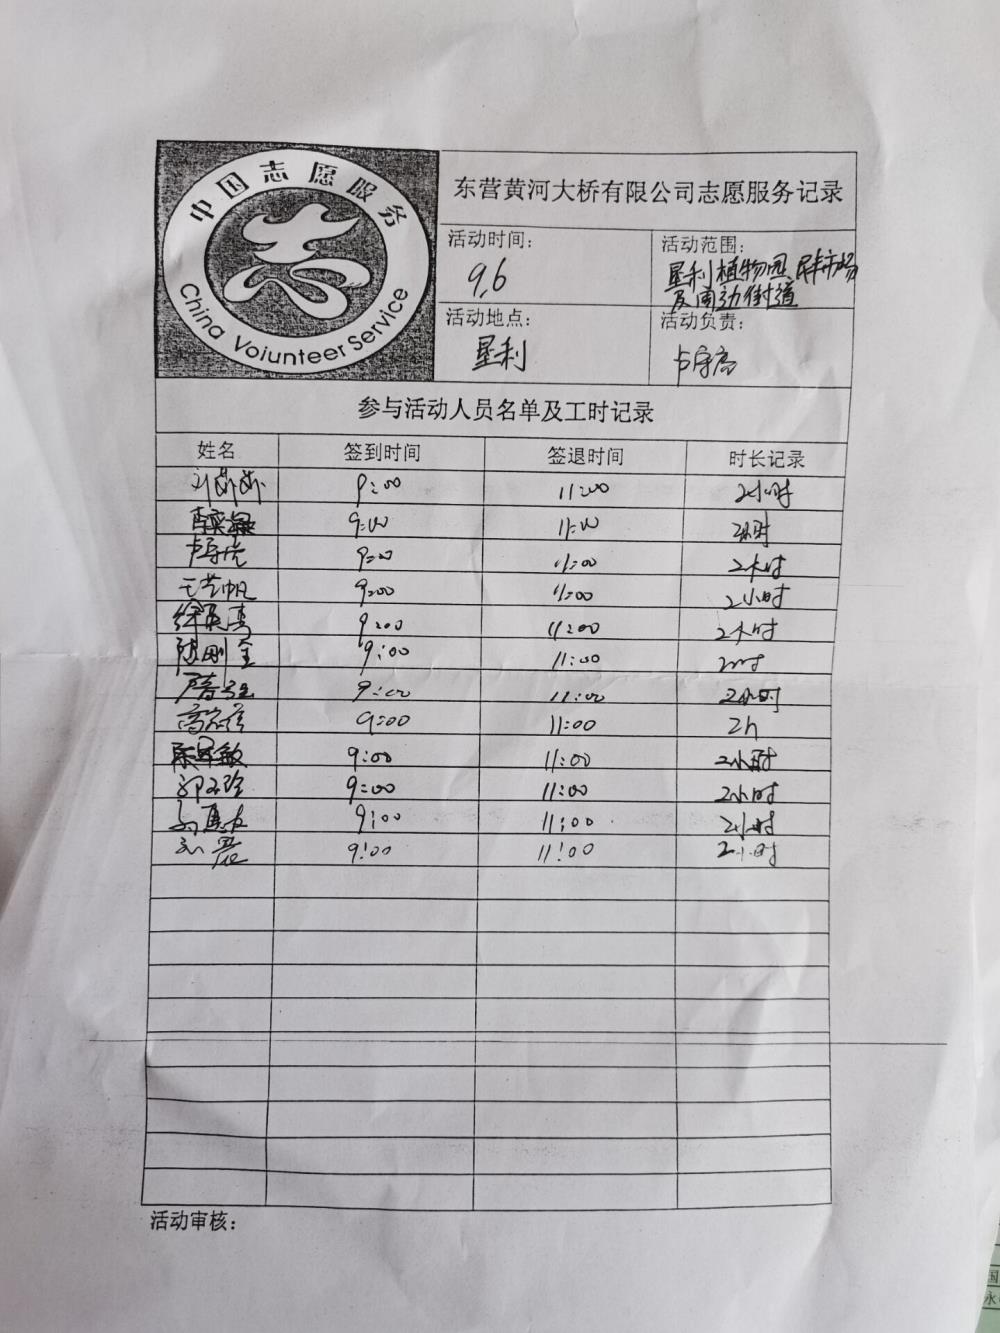 中国志愿服务
China Voiunteer Service
东营黄河大桥有限公司志愿服务记录
活动时间：
9.6
活动范围：
垦利植物园、
及周边街道
活动地点：
垦利
活动负责：
参与活动人员名单及工时记录
姓名 签到时间 签退时间 时长记录
9:00 11:00 2小时
9:00 11:00 2小时
9:00 11:00 2小时
王艺帆 9:00 11:00 2小时
9:00 11:00 2小时
陈刚金 9:00 11:00 2小时
9:00 11:00 2小时
9:00 11:00 2h
陈军敏 9:00 11:00 2小时
9:00 11:00 2小时
9:00 11:00 2小时
9:00 11:00 2小时
活动审核：
国
永